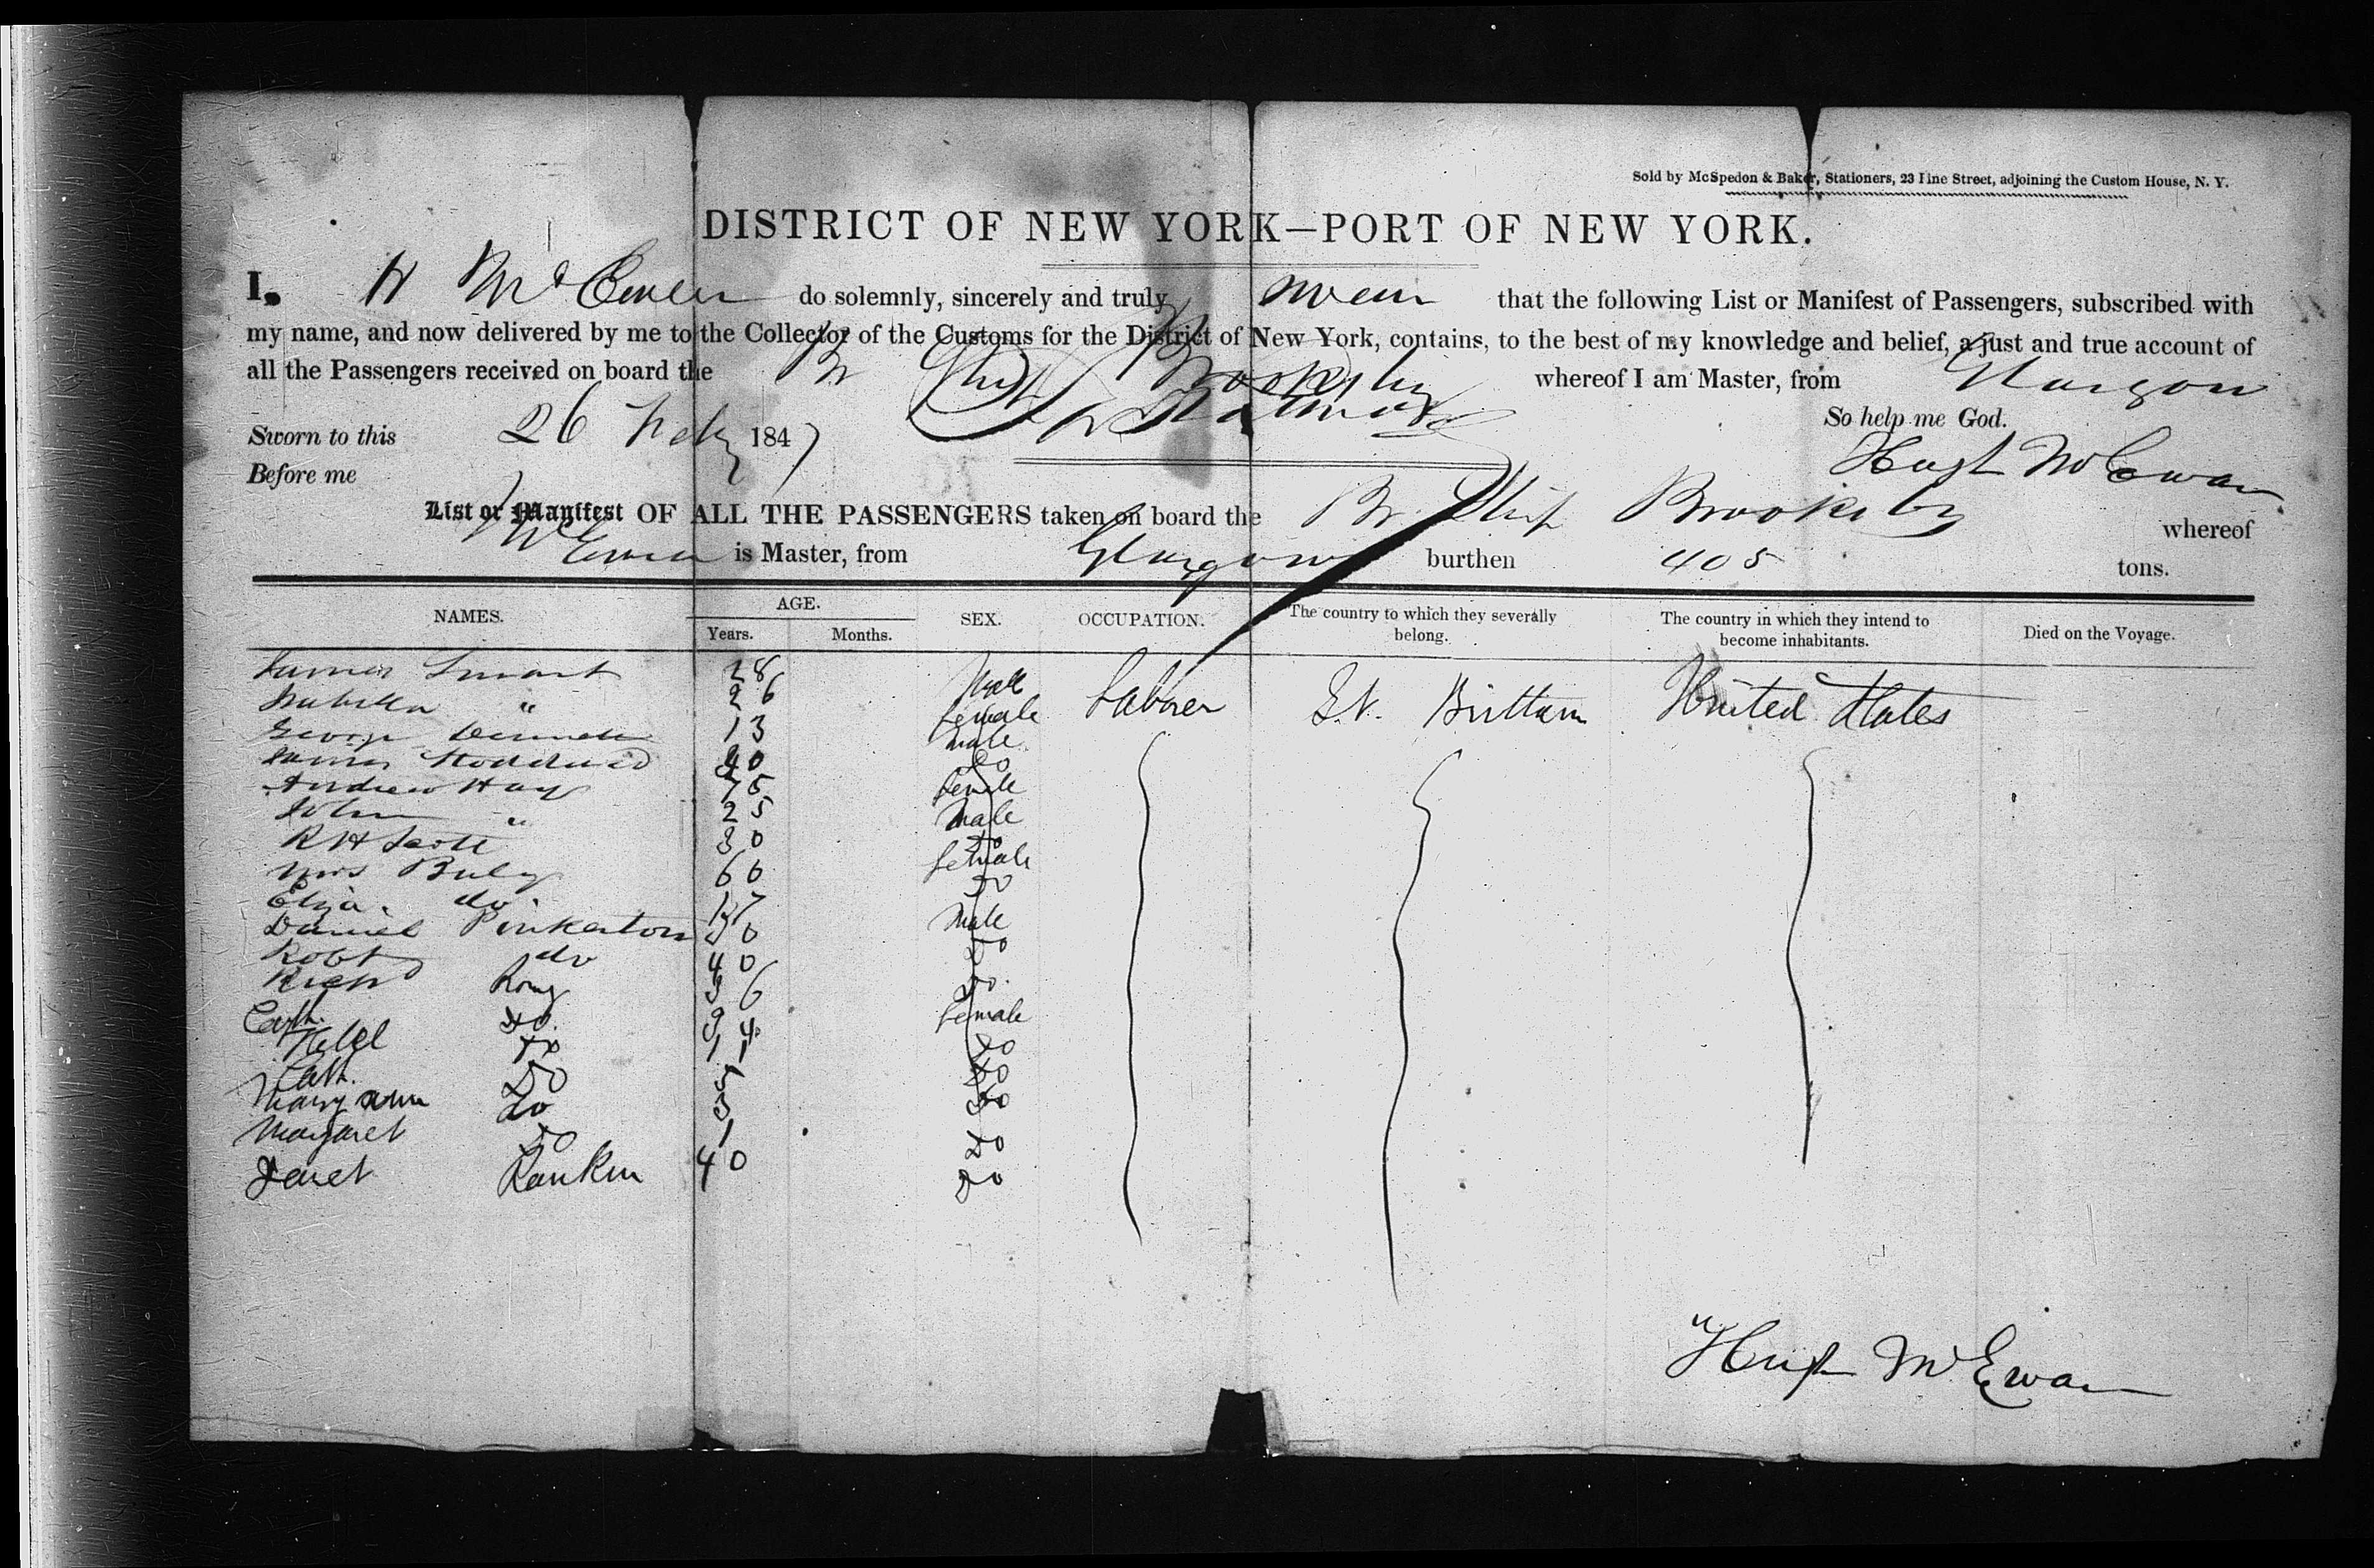 Sold by McSpedon & Baker, Stationers, 23 Pine Street, adjoining the Custom House, N. Y.
DISTRICT OF NEW YORK—PORT OF NEW YORK.
I, H McEwen do solemnly, sincerely and truly swear that the following List or Manifest of Passengers, subscribed with
my name, and now delivered by me to the Collector of the Customs for the District of New York, contains, to the best of my knowledge and belief, a just and true account of
all the Passengers received on board the Br Ship Brooksby whereof I am Master, from Glasgow
So help me God.
Sworn to this 26 Feby 1847
Hugh McEwan
Before me
List or Manifest OF ALL THE PASSENGERS taken on board the Br. Ship Brooksby whereof
McEwen is Master, from Glasgow burthen 405 tons.
NAMES. AGE. SEX. OCCUPATION. The country to which they severally belong. The country in which they intend to become inhabitants. Died on the Voyage.
Years. Months.
James Smart 28 Male Laborer Gt. Brittain United States
Isabella " 26 female
George 13 male
James Stoddard 40 Do
Andrew Hay female
John " 25 Male
R H Scott 30 Do
Mrs Buly 60 female
Eliza. do. 17 Do
Daniel Pinkerton 30 Male
Robt do 40 Do
Richd 36 Do.
Cath. Do. 34 female
Do 11 Do
Cath. Do Do
Mary ann Do 3 Do
Margaret Do 1 Do
Janet Rankin 40 Do
Hugh McEwan